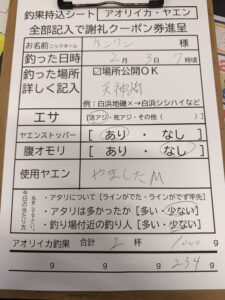 釣果持込シート アオリイカ・ヤエン
全部記入で謝礼クーポン券進呈
お名前ニックネーム ケンケン 様
釣った日時 2月3日7時頃
釣った場所 ☑場所公開OK
詳しく記入 天神崎
例：白浜地磯×→白浜シシハイなど
エサ [活アジ・死アジ・その他( )]
ヤエンストッパー あり ・ なし
腹オモリ あり ・ なし
使用ヤエン やましたM
今日の当たり方
丸をして下さい。
・アタリについて [ラインがでた・ラインがでず竿先]
・アタリは多かったか [多い・少ない]
・釣り場付近の釣り人 [多い・少ない]
アオリイカ釣果 合計 2杯 1000g
g g g 234g
g g g g